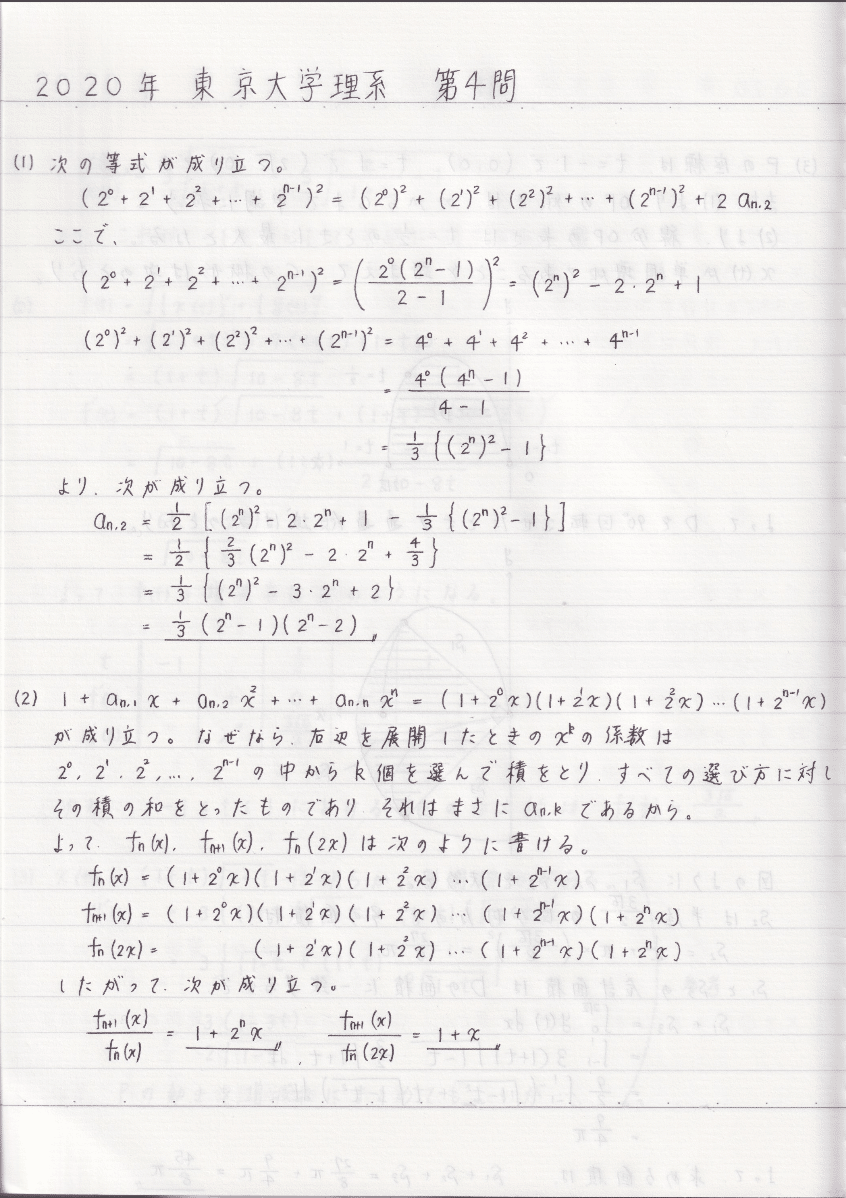 2020年 東京大学理系 第4問
(1) 次の等式が成り立つ。
(2⁰ + 2¹ + 2² + ⋯ + 2ⁿ⁻¹)² = (2⁰)² + (2¹)² + (2²)² + ⋯ + (2ⁿ⁻¹)² + 2 aₙ,₂
ここで、
(2⁰ + 2¹ + 2² + ⋯ + 2ⁿ⁻¹)² = (2⁰(2ⁿ - 1) / (2 - 1))² = (2ⁿ)² - 2・2ⁿ + 1
(2⁰)² + (2¹)² + (2²)² + ⋯ + (2ⁿ⁻¹)² = 4⁰ + 4¹ + 4² + ⋯ + 4ⁿ⁻¹
= 4⁰(4ⁿ - 1) / (4 - 1)
= 1/3 {(2ⁿ)² - 1}
より、次が成り立つ。
aₙ,₂ = 1/2 [(2ⁿ)² - 2・2ⁿ + 1 - 1/3 {(2ⁿ)² - 1}]
= 1/2 {2/3 (2ⁿ)² - 2・2ⁿ + 4/3}
= 1/3 {(2ⁿ)² - 3・2ⁿ + 2}
= 1/3 (2ⁿ - 1)(2ⁿ - 2)〃
(2) 1 + aₙ,₁ x + aₙ,₂ x² + ⋯ + aₙ,ₙ xⁿ = (1 + 2⁰x)(1 + 2¹x)(1 + 2²x)⋯(1 + 2ⁿ⁻¹x)
が成り立つ。なぜなら、右辺を展開したときの xᵏ の係数は
2⁰, 2¹, 2², …, 2ⁿ⁻¹ の中から k 個を選んで積をとり、すべての選び方に対し
その積の和をとったものであり、それはまさに aₙ,ₖ であるから。
よって、fₙ(x), fₙ₊₁(x), fₙ(2x) は次のように書ける。
fₙ(x) = (1 + 2⁰x)(1 + 2¹x)(1 + 2²x) ⋯ (1 + 2ⁿ⁻¹x)
fₙ₊₁(x) = (1 + 2⁰x)(1 + 2¹x)(1 + 2²x) ⋯ (1 + 2ⁿ⁻¹x)(1 + 2ⁿx)
fₙ(2x) = (1 + 2¹x)(1 + 2²x) ⋯ (1 + 2ⁿ⁻¹x)(1 + 2ⁿx)
したがって、次が成り立つ。
fₙ₊₁(x) / fₙ(x) = 1 + 2ⁿx〃, fₙ₊₁(x) / fₙ(2x) = 1 + x〃